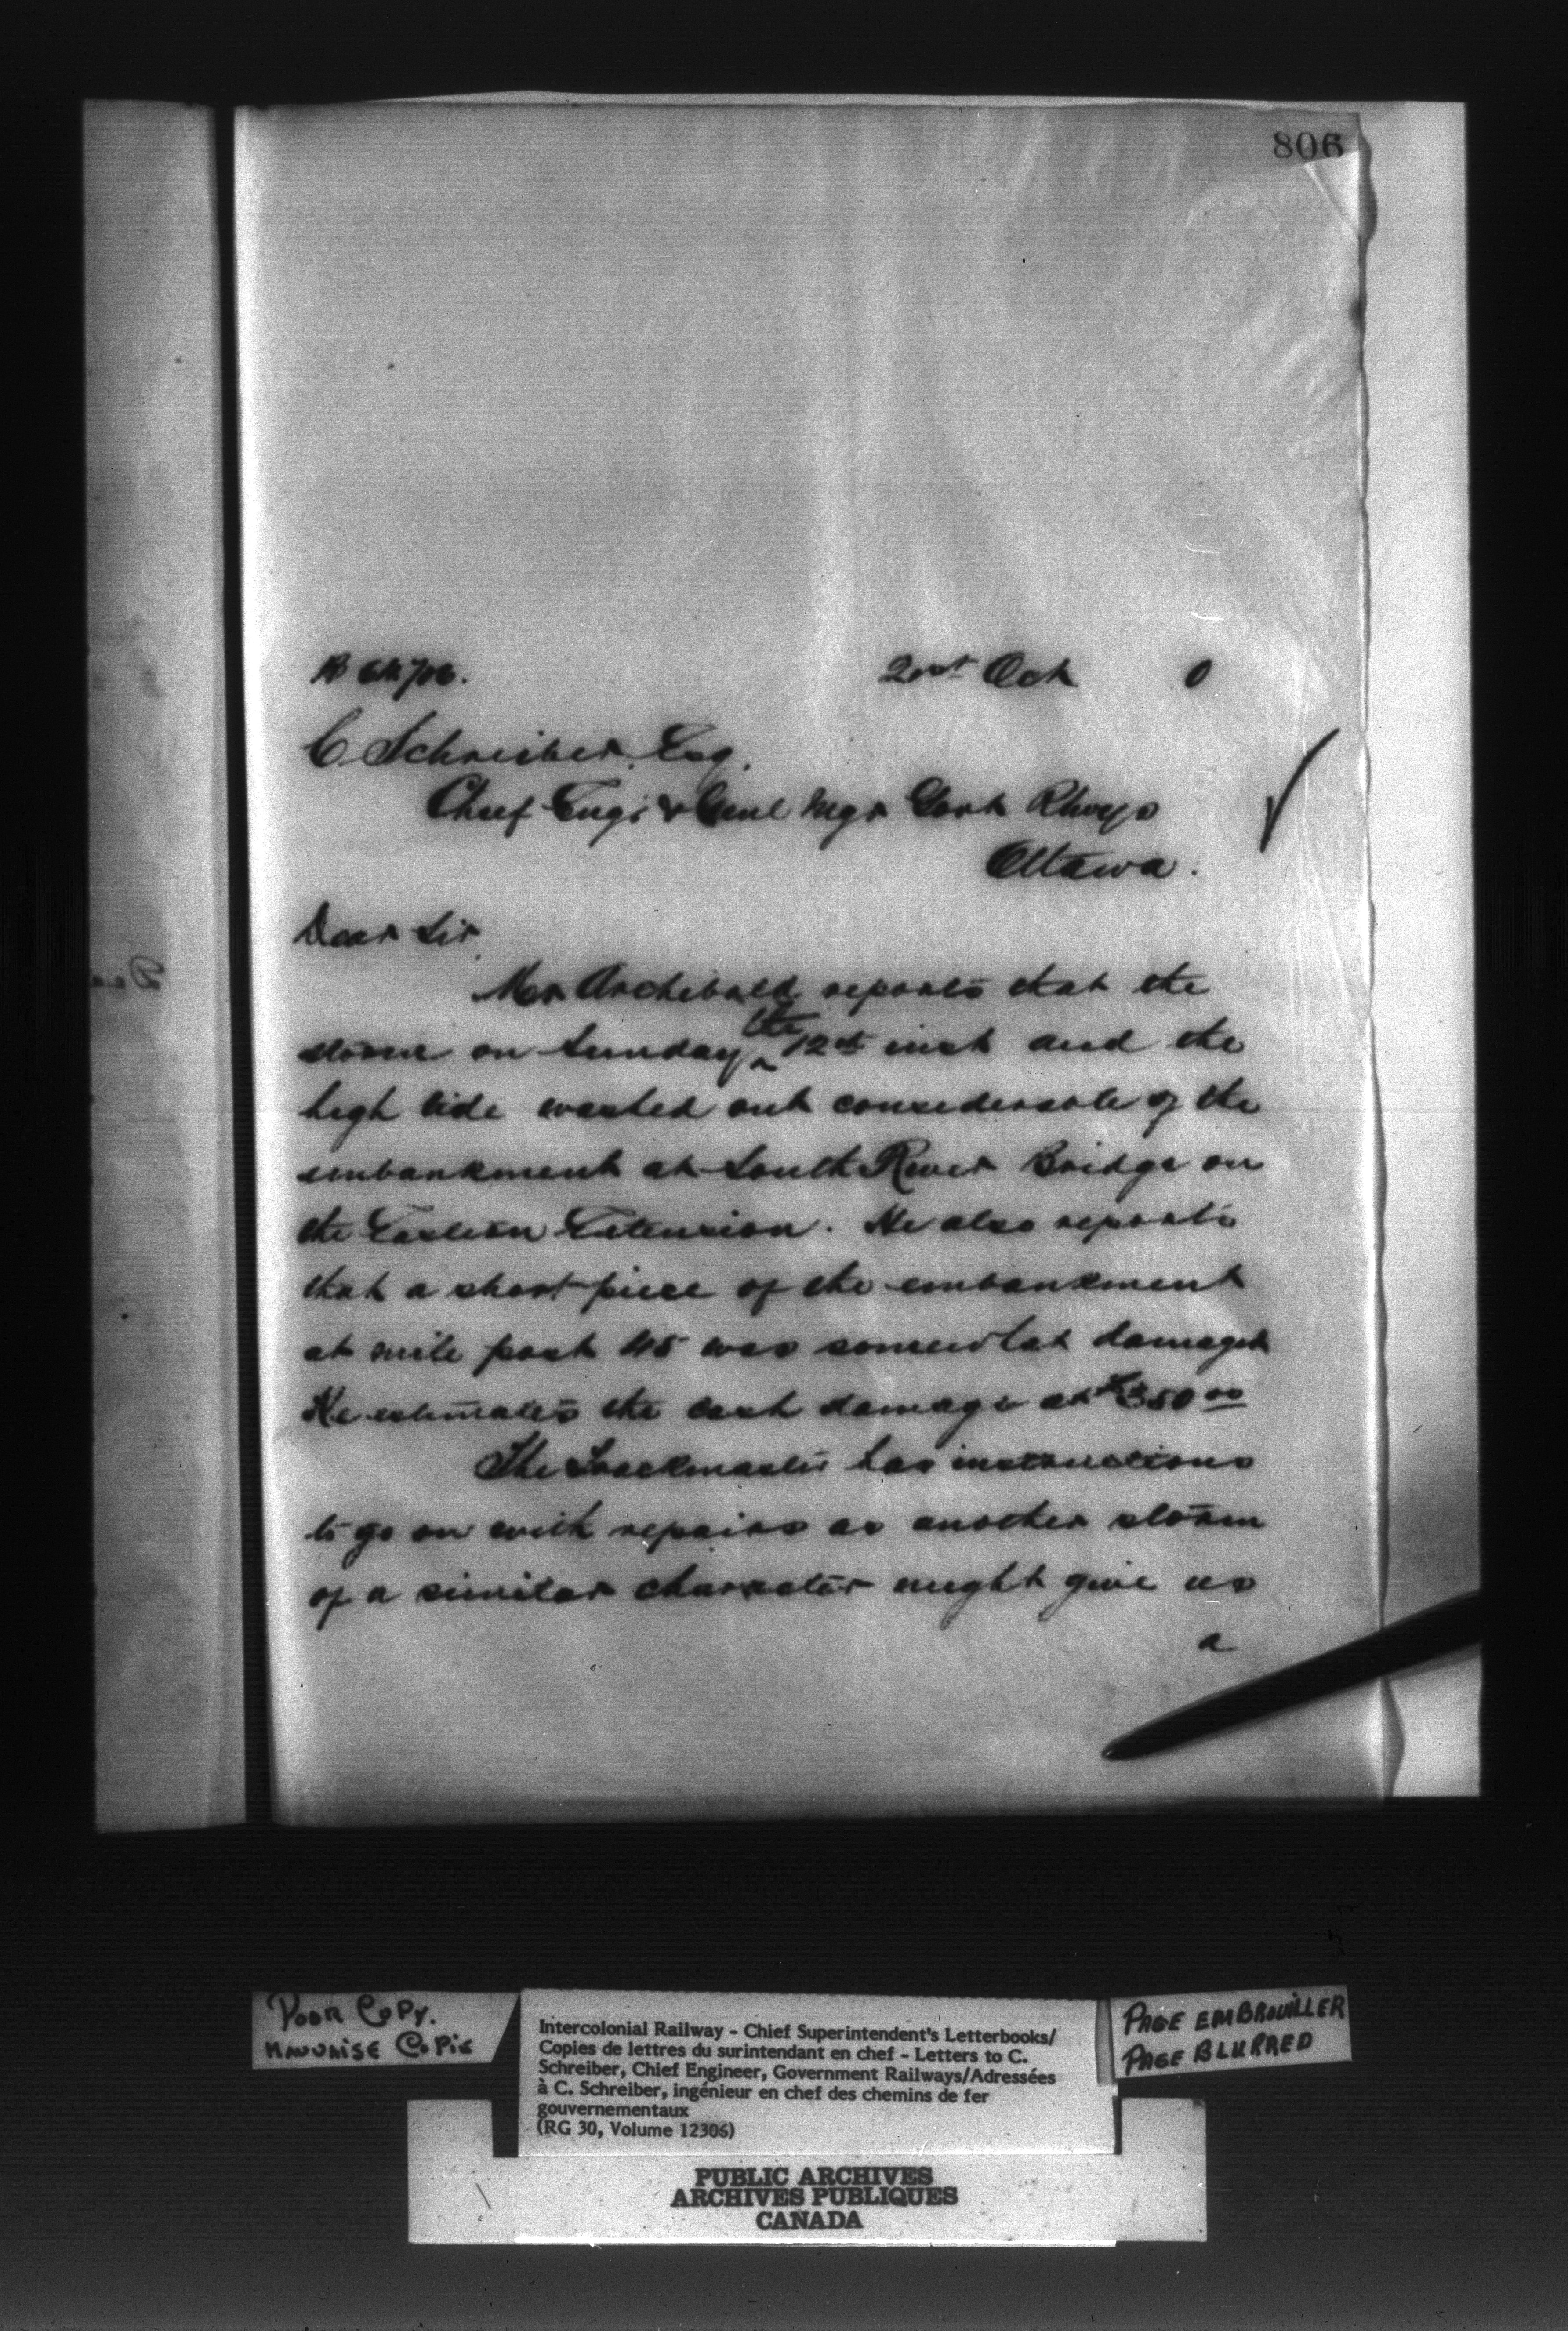 806
21st Oct 0
C Schreiber Esq.
Chief Engr & Genl Mgr Govt Rlways
Ottawa.
Dear Sir
Mr Archibald reports that the
storm on Sunday the 12th inst and the
high tide washed out considerable of the
embankment at South River Bridge on
the Eastern Extension. He also reports
that a short piece of the embankment
at mile post 45 was somewhat damaged
He estimates the damage at $350 00
The Trackmaster has instructions
to go on with repairs as another storm
of a similar character might give us
a
Poor Copy.
Mauvaise Copie
Intercolonial Railway - Chief Superintendent's Letterbooks/
Copies de lettres du surintendant en chef - Letters to C.
Schreiber, Chief Engineer, Government Railways/Adressées
à C. Schreiber, ingénieur en chef des chemins de fer
gouvernementaux
(RG 30, Volume 12306)
PAGE EMBROUILLER
PAGE BLURRED
PUBLIC ARCHIVES
ARCHIVES PUBLIQUES
CANADA